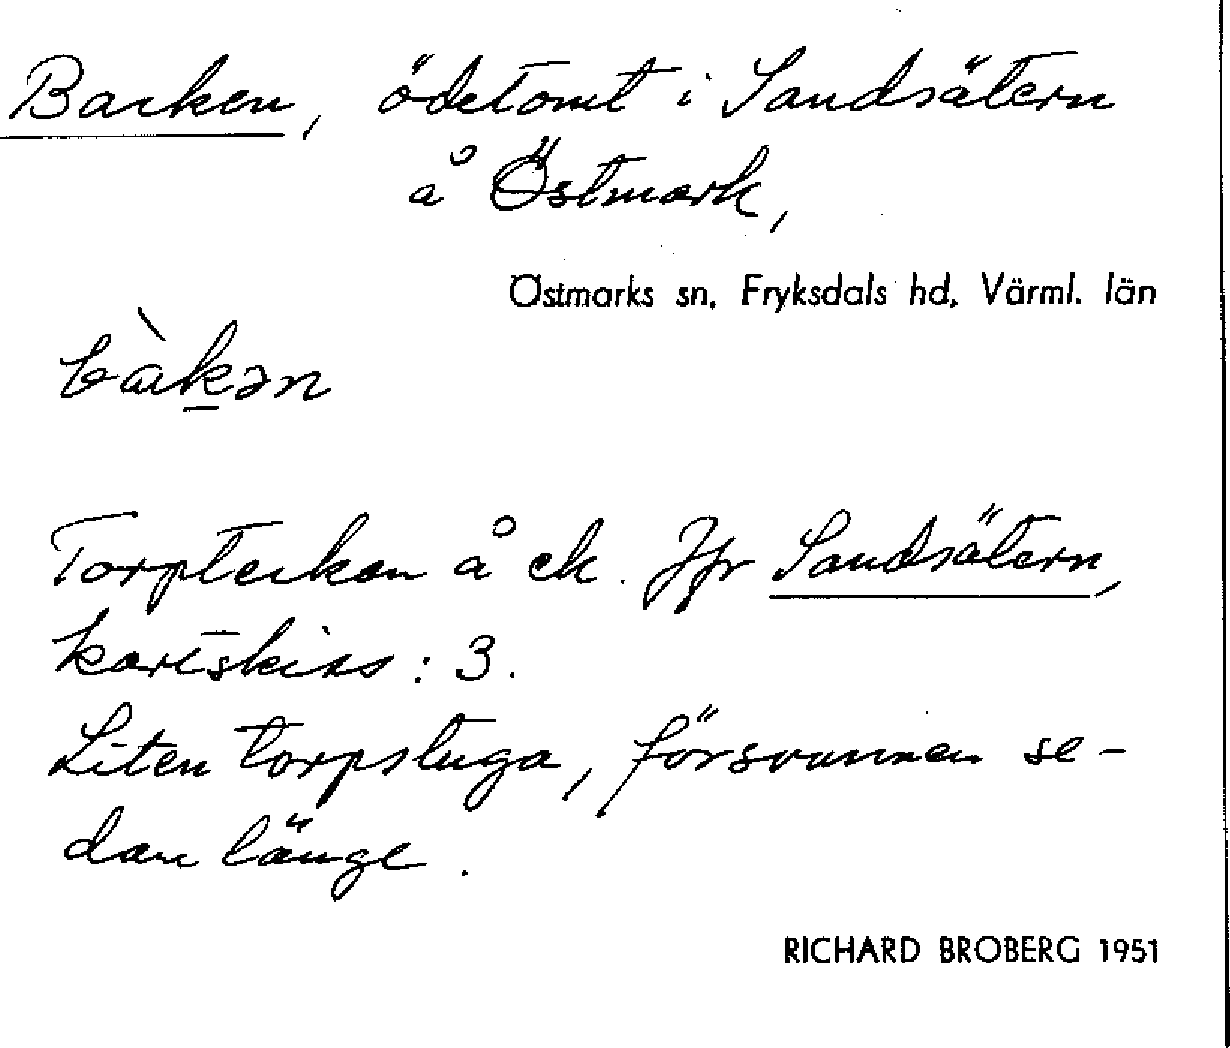 Backen, ödetomt i Sandsätern
å Östmark,
Östmarks sn, Fryksdals hd, Värml. län
bàkən
Torptecken å ek. Jfr Sandsätern,
kartskiss: 3.
Liten torpstuga, försvunnen se-
dan länge.
RICHARD BROBERG 1951